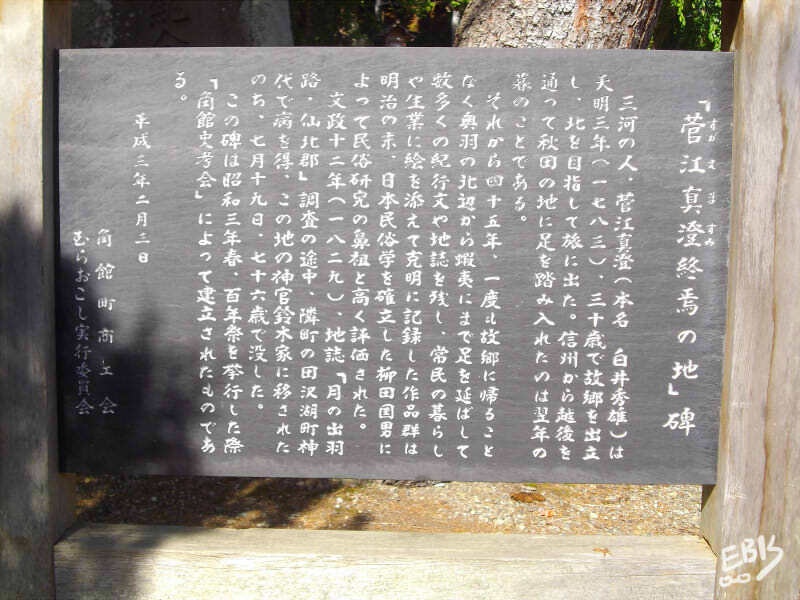 「菅江真澄終焉の地」碑
すが え ま すみ
三河の人、菅江真澄(本名 白井秀雄)は
天明三年(一七八三)、三十歳で故郷を出立
し、北を目指して旅に出た。信州から越後を
通って秋田の地に足を踏み入れたのは翌年の
暮のことである。
それから四十五年、一度も故郷に帰ること
なく奥羽の北辺から蝦夷にまで足を延ばして
数多くの紀行文や地誌を残し、常民の暮らし
や生業に絵を添えて克明に記録した作品群は
明治の末、日本民俗学を確立した柳田国男に
よって民俗研究の鼻祖と高く評価された。
文政十二年(一八二九)、地誌「月の出羽
路・仙北郡」調査の途中、隣町の田沢湖町神
代で病を得、この地の神官鈴木家に移された
のち、七月十九日、七十六歳で没した。
この碑は昭和三年春、百年祭を挙行した際
「角館史考会」によって建立されたものであ
る。
平成三年二月三日
角館町商工会
むらおこし実行委員会
EBK